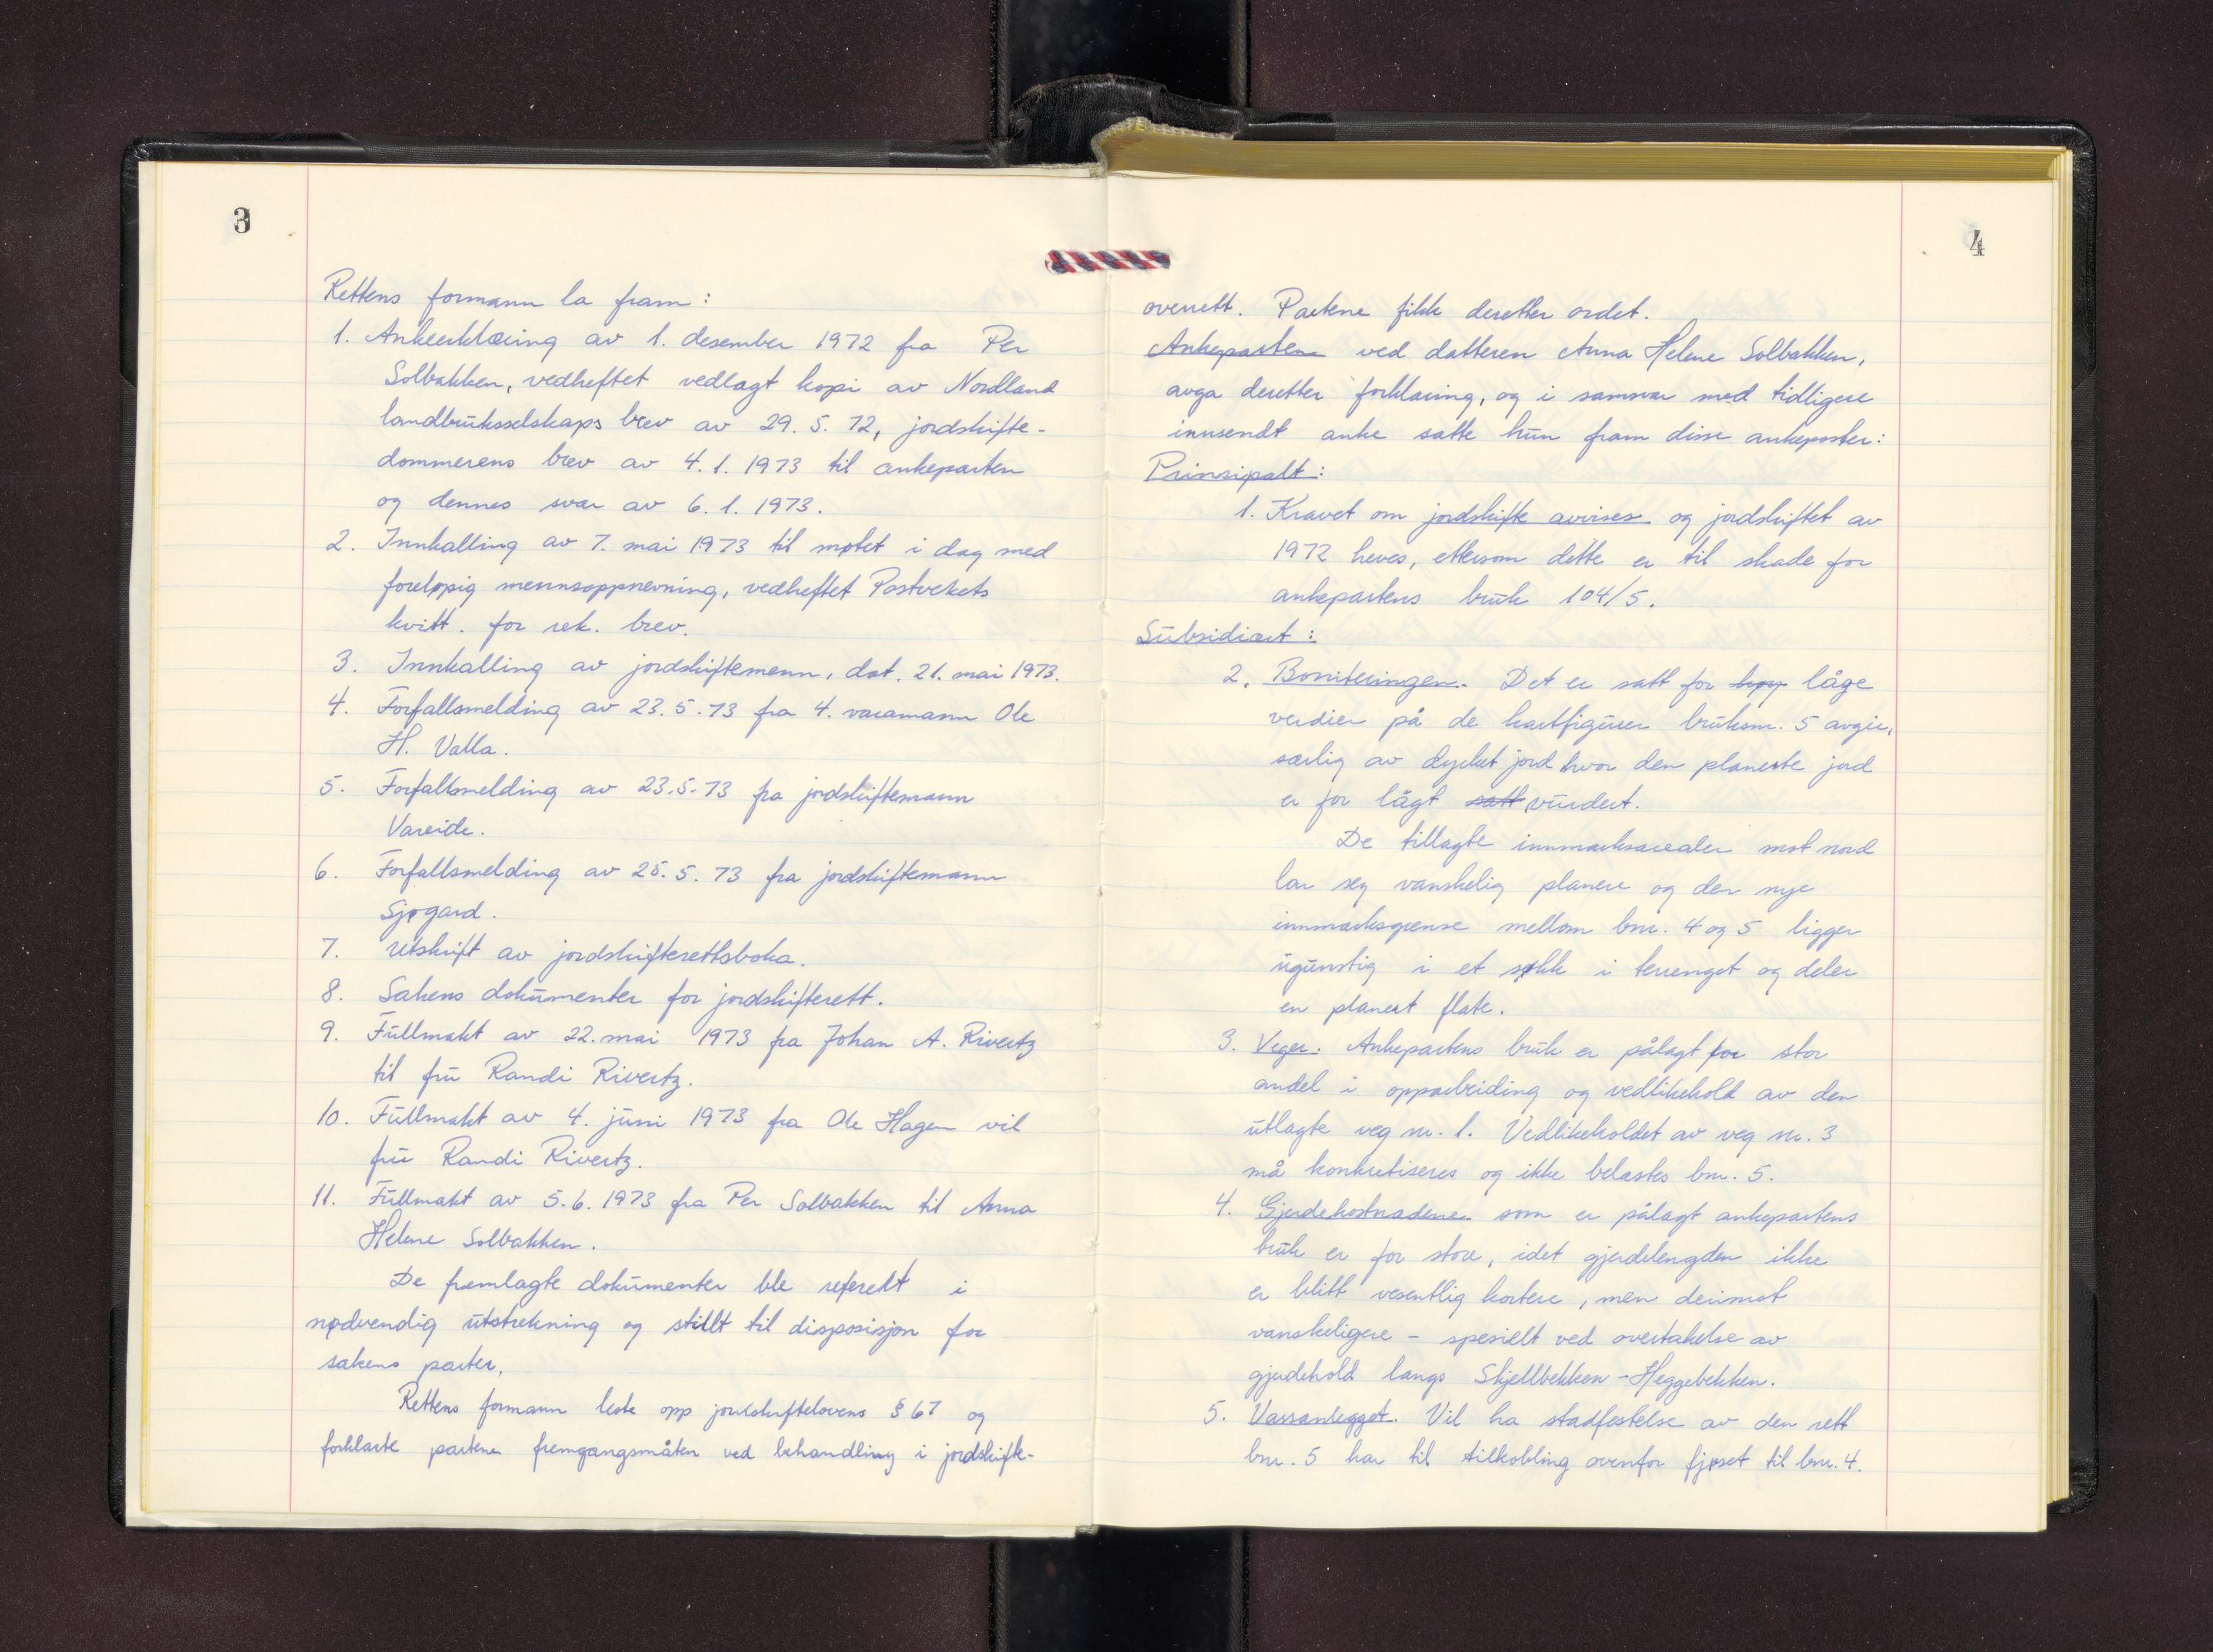 3
Rettens formann la fram:
1. Ankeerklæring av 1. desember 1972 fra Per
Solbakken, vedheftet vedlagt kopi av Nordland
landbruksselskaps brev av 29.5.72, jordskifte-
dommerens brev av 4.1.1973 til ankeparten
og dennes svar av 6.1.1973.
2. Innkalling av 7. mai 1973 til møtet i dag med
foreløpig mennsoppnevning, vedheftet Postverkets
kvitt. for rek. brev.
3. Innkalling av jordskiftemenn, dat. 21. mai 1973.
4. Forfallsmelding av 23.5.73 fra 4. varamann Ole
H. Valla.
5. Forfallsmelding av 23.5.73 fra jordskiftemann
Vareide.
6. Forfallsmelding av 25.5.73 fra jordskiftemann
Sjøgard.
7. Utskrift av jordskifterettsboka.
8. Sakens dokumenter for jordskifterett.
9. Fullmakt av 22. mai 1973 fra Johan A. Rivertz
til fru Randi Rivertz.
10. Fullmakt av 4. juni 1973 fra Ole Hagen vil
fru Randi Rivertz.
11. Fullmakt av 5.6.1973 fra Per Solbakken til Anna
Helene Solbakken.
De fremlagte dokumenter ble referert i
nødvendig utstrekning og stillt til disposisjon for
sakens parter.
Rettens formann leste opp jordskiftelovens § 67 og
forklarte partene fremgangsmåten ved behandling i jordskifte-
4
overrett. Partene fikk deretter ordet.
Ankeparten ved datteren Anna Helene Solbakken,
avga deretter forklaring, og i samsvar med tidligere
innsendt anke satte hun fram disse ankeposter:
Prinsipalt:
1. Kravet om jordskifte avvises og jordskiftet av
1972 heves, ettersom dette er til skade for
ankepartens bruk 104/5.
Subsidiært:
2. Boniteringen. Det er satt for høy låge
verdier på de kartfigurer bruksnr. 5 avgir,
særlig av dyrket jord hvor den planerte jord
er for lågt satt vurdert.
De tillagte innmarksarealer mot nord
lar seg vanskelig planere og den nye
innmarksgrense mellom bnr. 4 og 5 ligger
ugunstig i et søkk i terrenget og deler
en planert flate.
3. Veger. Ankepartens bruk er pålagt for stor
andel i opparbeiding og vedlikehold av den
utlagte veg nr. 1. Vedlikeholdet av veg nr. 3
må konkretiseres og ikke belastes bnr. 5.
4. Gjerdekostnadene som er pålagt ankepartens
bruk er for store, idet gjerdelengden ikke
er blitt vesentlig kortere, men derimot
vanskeligere - spesielt ved overtakelse av
gjerdehold langs Skjellbekken - Heggebekken.
5. Vassanlegget. Vil ha stadfestelse av den rett
bnr. 5 har til tilkobling ovenfor fjøset til bnr. 4.